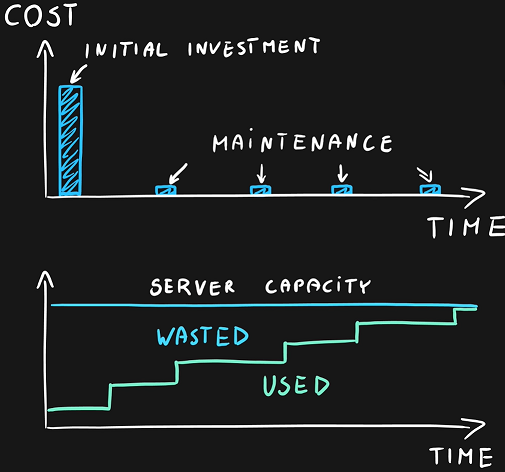 COST
INITIAL INVESTMENT
MAINTENANCE
TIME
SERVER CAPACITY
WASTED
USED
TIME